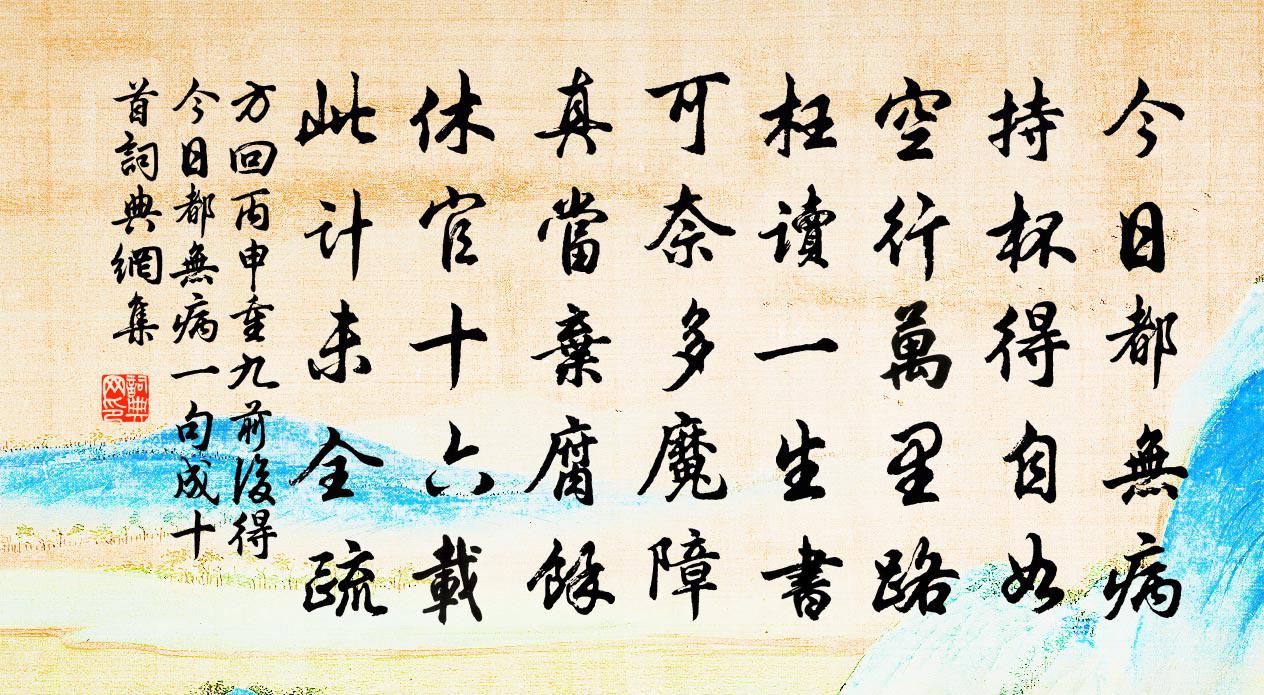 今日都無病
持杯得自如
空行萬里路
枉讀一生書
可奈多魔障
真當棄腐餘
休官十六載
此计未全疏
方回丙申重九前後得
今日都無病一句成十
首詞典網集
詞典
网印